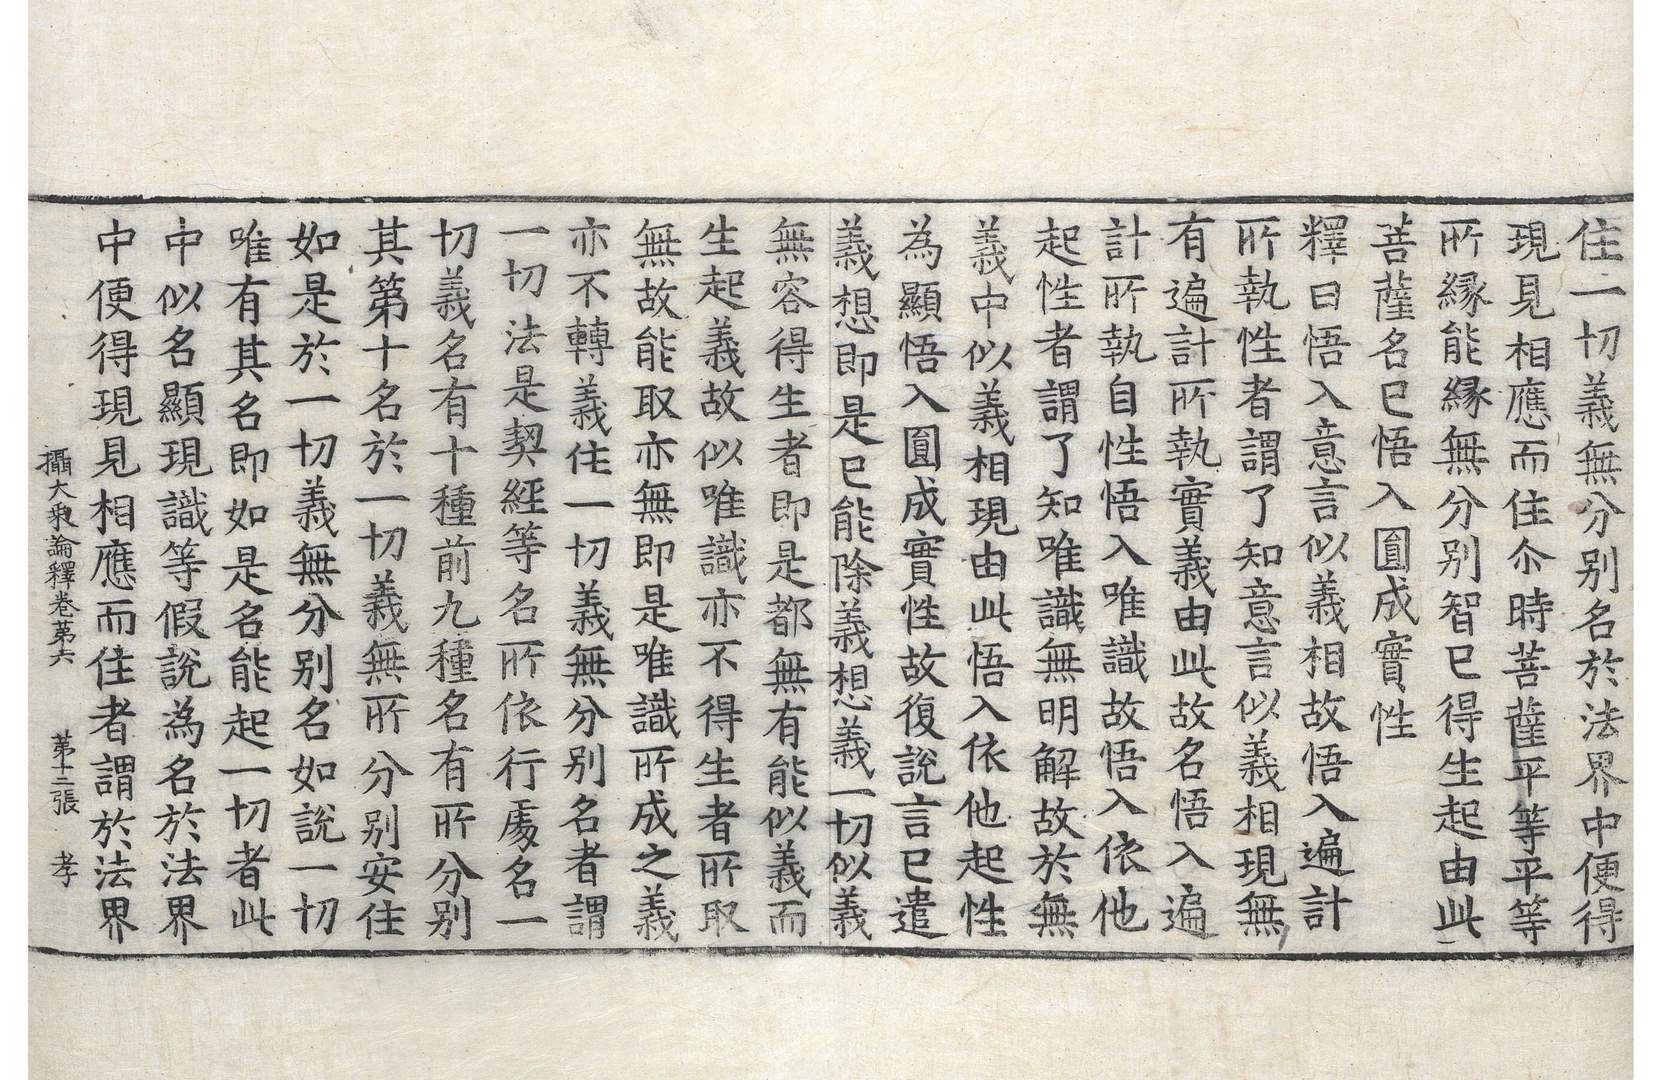 住一切義無分别名於法界中便得
現見相應而住尒時菩薩平等平等
所縁能縁無分别智已得生起由此
菩薩名已悟入圓成實性
釋曰悟入意言似義相故悟入遍計
所執性者謂了知意言似義相現無
有遍計所執實義由此故名悟入遍
計所執自性悟入唯識故悟入依他
起性者謂了知唯識無明解故於無
義中似義相現由此悟入依他起性
為顯悟入圓成實性故復說言已遣
義想即是已能除義想義一切似義
無容得生者即是都無有能似義而
生起義故似唯識亦不得生者所取
無故能取亦無即是唯識所成之義
亦不轉義住一切義無分别名者謂
一切法是契經等名所依行處名一
切義名有十種前九種名有所分别
其第十名於一切義無所分别安住
如是於一切義無分别名如說一切
唯有其名即如是名能起一切者此
中似名顯現識等假說為名於法界
中便得現見相應而住者謂於法界
攝大乘論釋卷第六 第十二張 孝